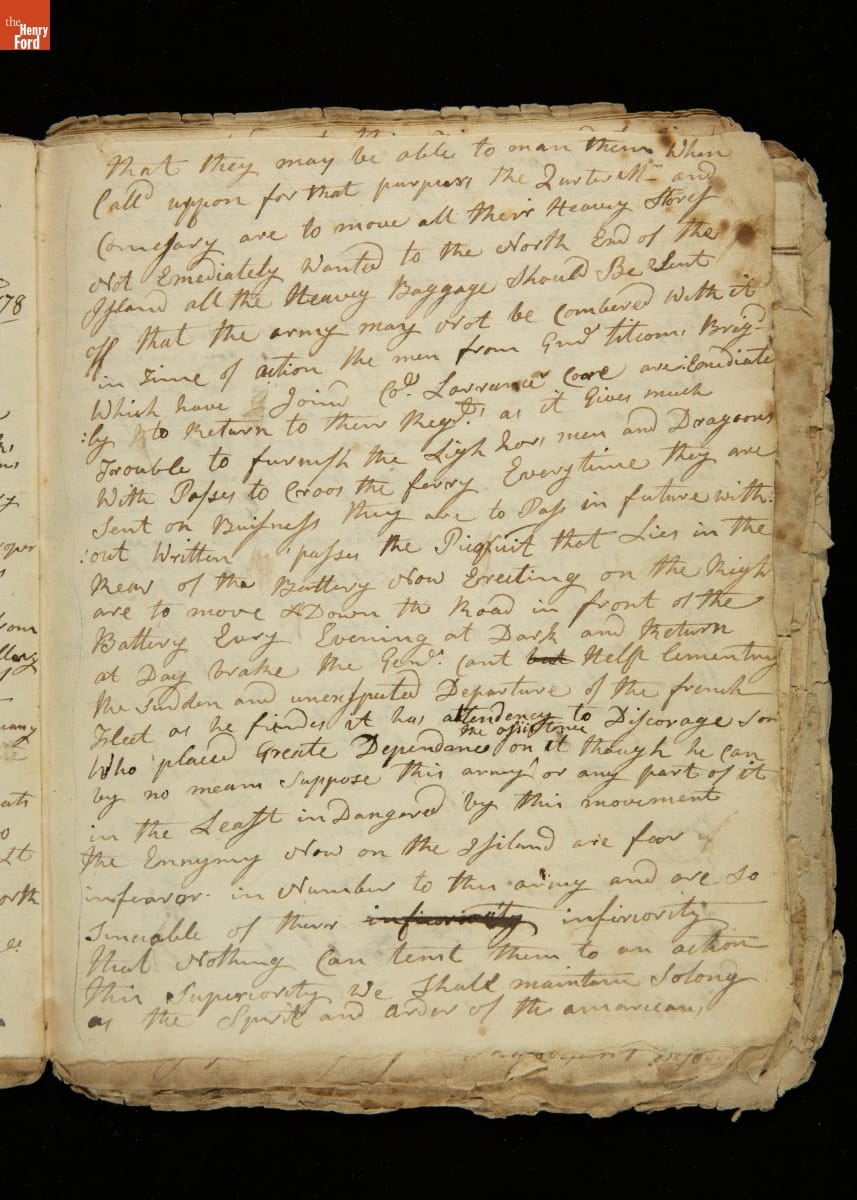 the
Henry
Ford
that they may be able to man them When
Calld uppon for that purpess the Qurter Mr and
Comessary are to move all their Heavey Stores
Not Emediately Wanted to the North End of the
Island all the Heavey Baggage Should Be Sent
off that the army may Not be Combered With it
in Time of action the men from Genl titcoms Brigd
Which have Joind Col Larrance Core are :Emediate
:ly to Return to their Regts as it Gives much
Trouble to furnish the Ligh hors men and Dragoons
With Passes to Croos the ferry Everytime they are
Sent on Buisness they are to Pass in future with:
:out Written passes the Piqkuit that Lies in the
Rear of the Battery Now Erecting on the Righ
are to move Down the Road in front of the
Battery Every Evening at Dark and Return
at Day brake the Genl Cant but Helf lementing
the Sudden and unexspected Departure of the french
Fleet as he findes it has attendency to Discorage Som
the assistance
Who placed Greate Dependance on it though he can
by no means Suppose this army or any part of it
in the Least in Dangered by this movement
the Ennymy Now on the Island are far
infearor in Number to this army and are So
Sincable of there inficiority infiriority
that Nothing Can temt them to an action
this Superiority we Shall maintain Solong
as the Spirit and order of the amaricans
78